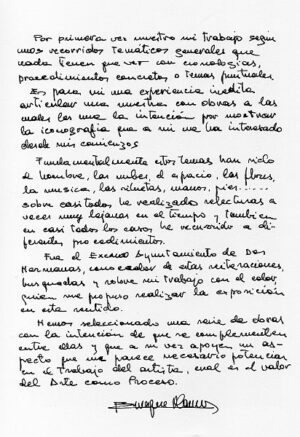 Por primera vez muestro mi trabajo según
unos recorridos temáticos generales que
nada tienen que ver con cronologías,
procedimientos concretos o temas puntuales.
Es para mi una experiencia inédita
articular una muestra con obras a las
cuales les une la intención por mostrar
la iconografía que a mi me ha interesado
desde mis comienzos
Fundamentalmente estos temas han sido
el hombre, las nubes, el espacio, las flores,
la musica, las siluetas, manos, pies.....
sobre casi todos he realizado relecturas a
veces muy lejanas en el tiempo y también
en casi todos los casos he recurrido a di-
ferentes procedimientos.
Fue el Excmo Ayuntamiento de Dos
Hermanas, conocedor de estas reiteraciones,
busquedas y sobre mi trabajo con el color,
quien me propuso realizar la exposición
en este sentido.
Hemos seleccionado una serie de obras
con la intención de que se complementen
entre ellas y que a su vez apoyen un as-
pecto que me parece necesario potenciar
en el trabajo del artista, cual es el valor
del Arte como Proceso.
Enrique Ramos